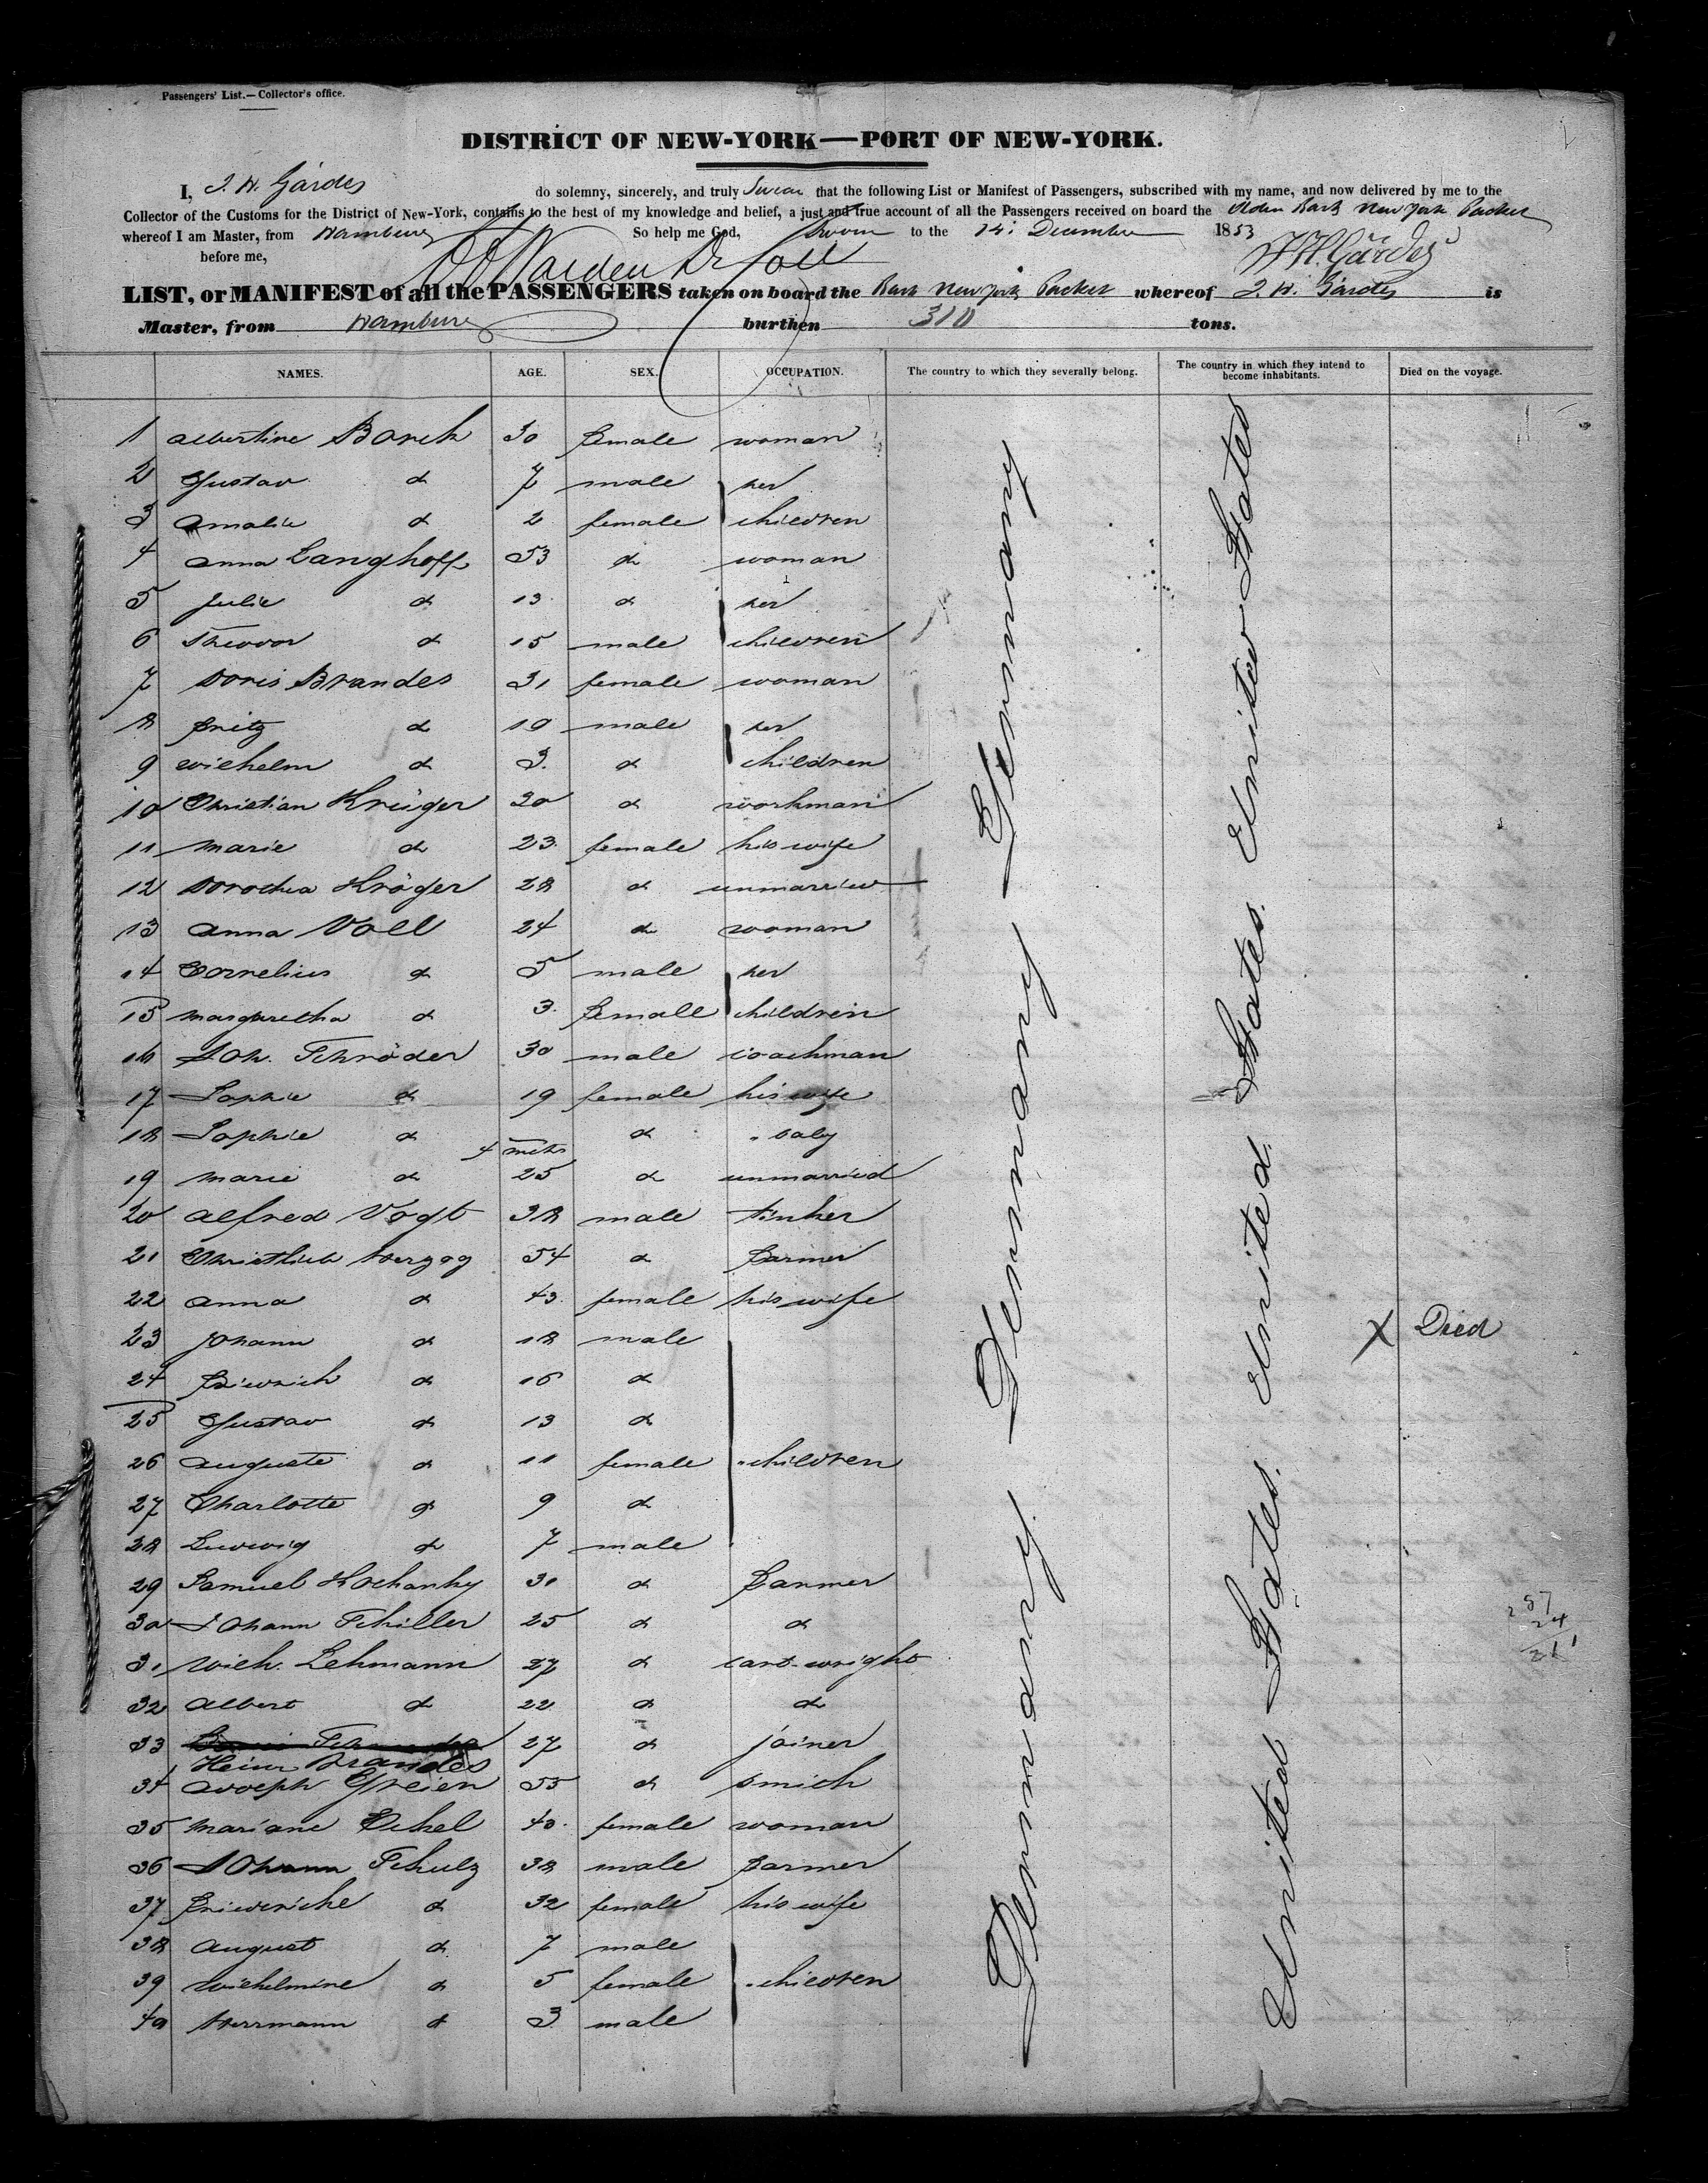 Passengers' List.— Collector's office.
DISTRICT OF NEW-YORK—PORT OF NEW-YORK.
I, J. H. Gardes do solemny, sincerely, and truly Swear that the following List or Manifest of Passengers, subscribed with my name, and now delivered by me to the
Collector of the Customs for the District of New-York, contains to the best of my knowledge and belief, a just and true account of all the Passengers received on board the Olden Bark New York Packet
whereof I am Master, from Hamburg So help me God, Sworn to the 14. December 1853
before me, J. H. Gärdes
LIST, or MANIFEST of all the PASSENGERS taken on board the Bark New York Packet whereof J. H. Gärdes is
Master, from Hamburg burthen 310 tons.
NAMES. AGE. SEX. OCCUPATION. The country to which they severally belong. The country in which they intend to become inhabitants. Died on the voyage.
1 Albertine Borch 30 female woman
2 Gustav d 7 male her
3 Amalie d 2 female children
4 Anna Langhoff 53 d woman
5 Julie d 13 d her
6 Theodor d 15 male children
7 Doris Brandes 31 female woman
8 Fritz d 10 male her
9 Wilhelm d 3. d children
10 Christian Krüger 20 d workman
11 Marie d 23. female his wife
12 Dorothea Kröger 28 d unmarried
13 Anna Voll 24 d woman
14 Cornelius d 5 male her
15 Margaretha d 3. female children
16 Joh. Schröder 30 male coachman
17 Sophie d 19 female his wife
18 Sophie d 4 mths d baby
19 Marie d 25 d unmarried
20 Alfred Vogt 38 male tinker
21 Christlieb Herzog 54 d farmer
22 Anna d 43. female his wife
23 Johann d 18 male X Died
24 Friedrich d 16 d
25 Gustav d 13 d
26 Auguste d 11 female children
27 Charlotte d 9 d
28 Ludwig d 7 male
29 Samuel Kochanky 31 d farmer
30 Johann Schiller 25 d d
31 Wilh. Lehmann 27 d cart-wright
32 Albert d 22 d d
33 27 d joiner
Heinr Brandes
34 Adolph Greien 55 d smith
35 Mariane Eckel 40. female woman
36 Johann Schulz 38 male farmer
37 Friederiche d 32 female his wife
38 August d 7 male
39 Wilhelmine d 5 female children
40 Herrmann d 3 male
Germany Germany Germany Germany
United States. United States. United States
257
24
211